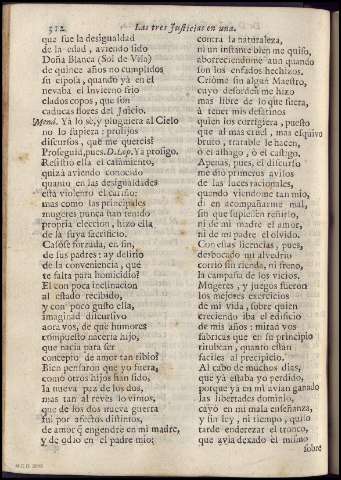 312 Las tres Justicias en una.
que fue la desigualdad
de la edad, aviendo sido
Doña Blanca (Sol de Villa)
de quince años no cumplidos
su esposa, quando yà en èl
nevaba el Invierno frio
elados copos, que son
caducas flores del Juicio.
Mend. Ya lo sè, y pluguiera al Cielo
no lo supiera: prolijos
discursos, què me quereis?
Proseguid, pues. D. Lop. Ya prosigo.
Resistiò ella el casamiento,
quizà aviendo conocido
quanto en las desigualdades
està violento el cariño:
mas como las principales
mugeres nunca han tenido
propria eleccion, hizo ella
de la suya sacrificio.
Casòse forzada, en fin,
de sus padres: ay delirio
de la conveniencia, què
te falta para homicidio?
El con poca inclinacion
al estado recibido,
y con poco gusto ella,
imaginad discursivo
aora vos, de què humores
compuesto naceria hijo,
que nacia para ser
concepto de amor tan tibio?
Bien pensaron que yo fuera,
como otros hijos han sido,
la nueva paz de los dos,
mas tan al revès lo vimos,
que de los dos nueva guerra
fui por afectos distintos,
de amor q̃ engendrè en mi madre,
y de odio en el padre mio;
contra la naturaleza,
ni un instante bien me quiso,
aborreciendome aun quando
son los enfados hechizos.
Criòme sin algun Maestro,
cuyo desorden me hizo
mas libre de lo que fuera,
à tener mis desatinos
quien los corrigiera, puesto
que al mas cruel, mas esquivo
bruto, tratable le hacen,
ò el alhago, ò el castigo.
Apenas, pues, el discurso
me diò primeros avisos
de las luces racionales,
quando viendome tan mio,
di en acompañarme mal,
sin que supiessen reñirlo,
ni de mi madre el amor,
ni de mi padre el olvido.
Con estas licencias, pues,
desbocado mi alvedrio
corriò sin rienda, ni freno,
la campaña de los vicios.
Mugeres, y juegos fueron
los mejores exercicios
de mi vida, sobre quien
creciendo iba el edificio
de mis años: mirad vos
fabricas que en su principio
titubean, quàn estàn
faciles al precipicio.
Al cabo de muchos dias,
que yà estaba yo perdido,
porque yà en mi avian ganado
las libertades dominio,
cayò en mi mala enseñanza,
y sin ley, ni tiempo, quiso
tarde enderezar el tronco,
que avia dexado èl mismo
sobre